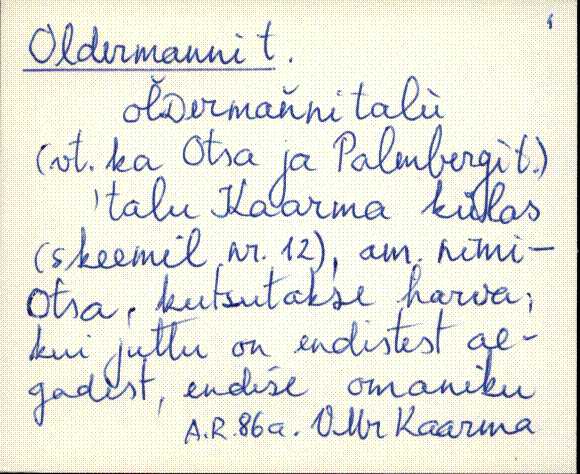 Oldermanni t.
olDermanni talu
(vt. ka Otsa ja Palmbergi t.)
'talu Kaarma külas
(skeemil nr. 12), am. nimi-
Otsa, kutsutakse harva,
kui juttu on endistest ae-
gadest, endise omaniku
A.R. 86a. VMr Kaarma